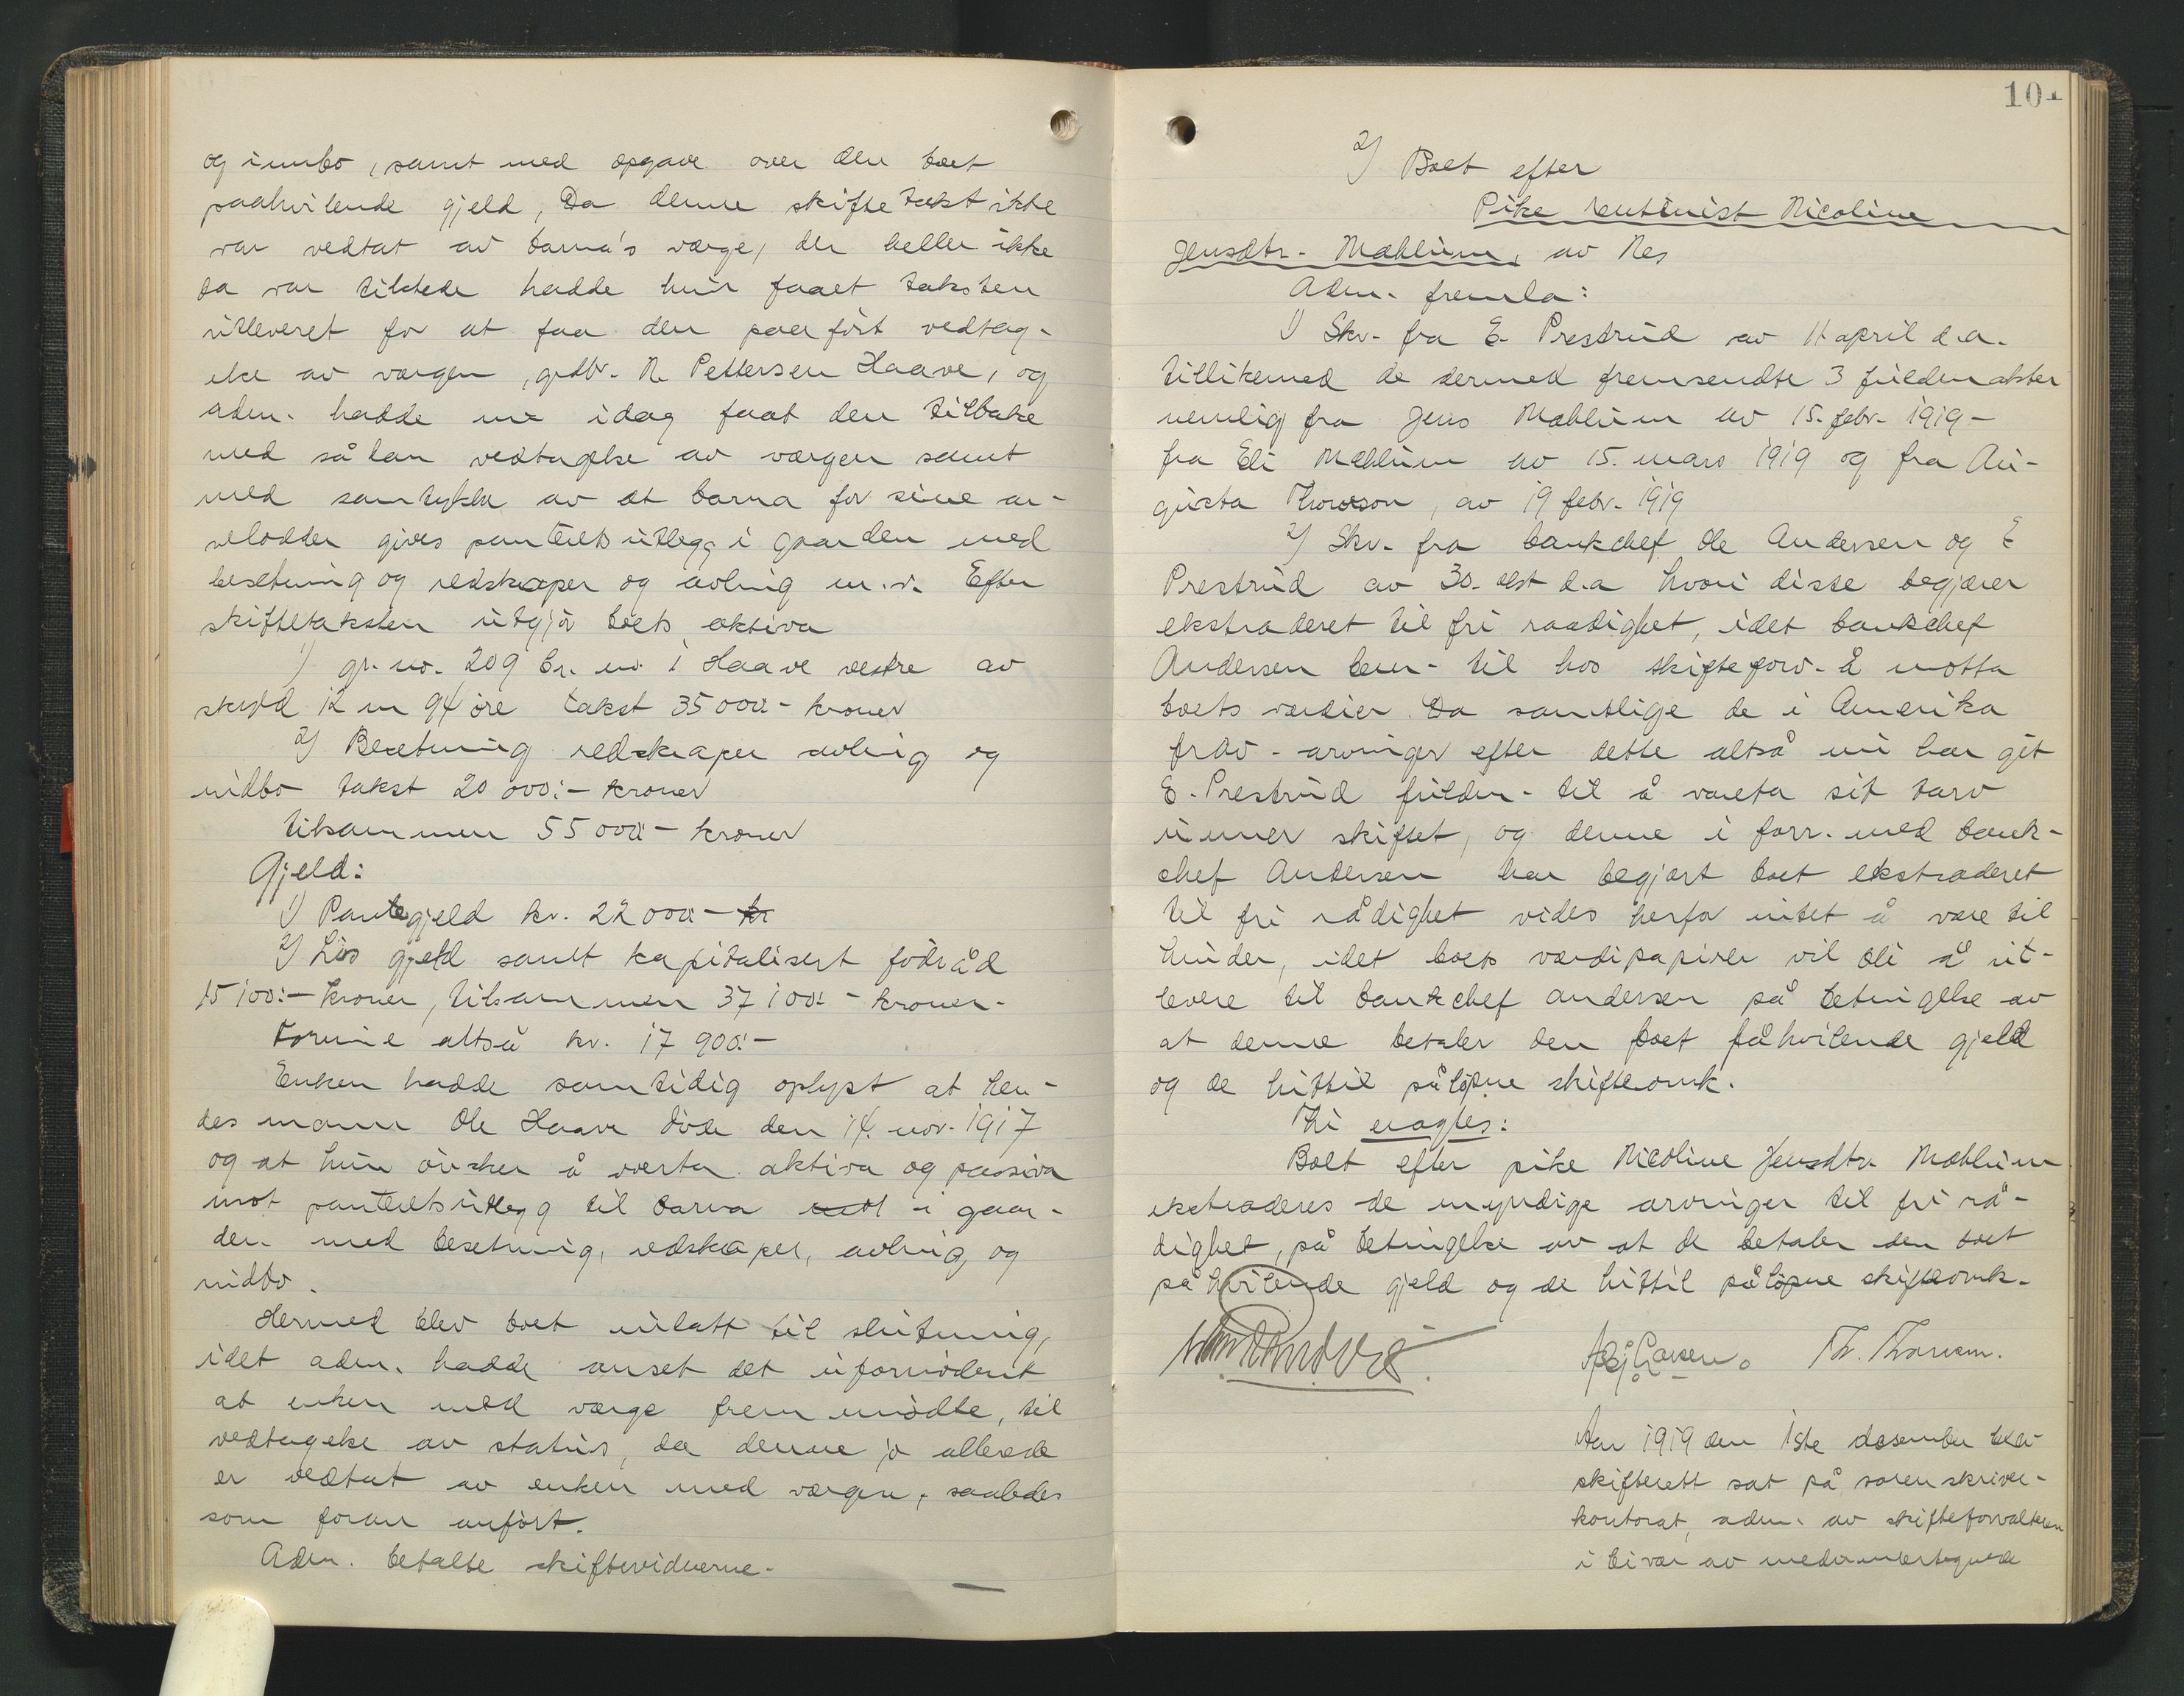 og innbo, samt med opgave over den boet
paahvilende gjeld, Da denne skiftetakst ikke
var vedtat av barna's værge, der heller ikke
da var tilstede hadde hun faaet taksten
utleveret for at faa den paaført vedtag-
else av værgen, grdbr. N. Pettersen Haave, og
adm. hadde nu idag faat den tilbake
med sålan vedtagelse av værgen samt
med samtykke av at barna for sine ar-
velodder gives panteretsutlegg i gaarden med
besetning og redskaper og avling m.v. Efter
skiftetaksten utgjør boets aktiva
1) gr. no. 209 br. no. 1 Haave vestre av
skyld 12 m 94 øre takst 35000:- kroner
2) Besetning redskaper avling og
indbo takst 20 000:- kroner
tilsammen 55 000:- kroner
Gjeld:
1) Pantegjeld kr. 22 000:- kr
2) Løs gjeld samt kapitalisert föderåd
15 100:- kroner, tilsammen 37 100:- kroner.
Formue altså kr. 17 900:-
Enken hadde samtidig oplyst at hen-
des mann Ole Haave døde den 14. nov. 1917
og at hun ønsker å overta aktiva og passiva
mot panteretsutlegg til barna i gaar-
den med besetning, redskaper, avling, og
indbo.
Hermed blev boet inlatt til slutning,
idet adm. hadde anset det ufornødent
at enken med værge frem mødte, til
vedtagelse av status, da denne jo allerede
er vedtat av enken med værgen, saaledes
som foran anført.
Adm. betalte skiftevidnerne.
101
2) Boet efter
Pike rentenist Nicoline
Jensdtr. Mæhlum, av Nes
Adm. fremla:
1) Skr. fra E. Prestrud av 11 april d.a.
tillikemed de dermed fremsendte 3 fuldmakter
nemlig fra Jens Mæhlum av 15. febr. 1919 -
fra Eli Mæhlum av 15. mars 1919 og fra Au-
gusta Thoreson, av 19 febr. 1919
2) Skr. fra bankchef Ole Andersen og E
Prestrud av 30. okt d.a hvori disse begjærer
ekstraderet til fri raadighet, idet bankchef
Andersen bem. til hos skifteforv. å motta
boets værdier. Da samtlige de i Amerika
frav. arvinger efter dette altså nu har git
E. Prestrud fuldm. til å vareta sit tarv
unner skiftet, og denne i forr. med bank-
chef Andersen har begjært boet ekstraderet
til fri rådighet vides herfor intet å være til
hinder, idet boets værdipapirer vil bli å ut-
levere til bankchef Andersen på betingelse av
at denne betaler den boet påhvilende gjeld
og de hittil påløpne skifteomk.
Thi eragtes:
Boet efter pike Nicoline Jensdtr Mæhlum
ekstraderes de myndige arvinger til fri rå-
dighet, på betingelse av at de betaler den boet
påhvilende gjeld og de hittil påløpne skifteomk.
Th. Thoresen.
Aar 1919 den 1ste desember blev
skifterett sat på sorenskriver-
kontorat, adm. av skifteforvalteren
i bivær av medunnertegnede